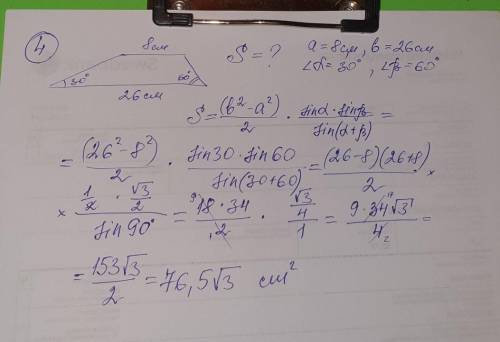 4
8см
30° 60°
26см
S = ? a = 8см, b = 26см
∠α = 30°, ∠β = 60°
S = (b² - a²)/2 · sinα · sinβ/sin(α + β) =
= (26² - 8²)/2 · sin30 · sin60/sin(30+60) = (26-8)(26+8)/2 ×
× 1/2 · √3/2/sin 90° = 9 18 · 34/2 · √3/4/1 = 9 · 34 17 √3/4 2 =
= 153√3/2 = 76,5√3 cm²